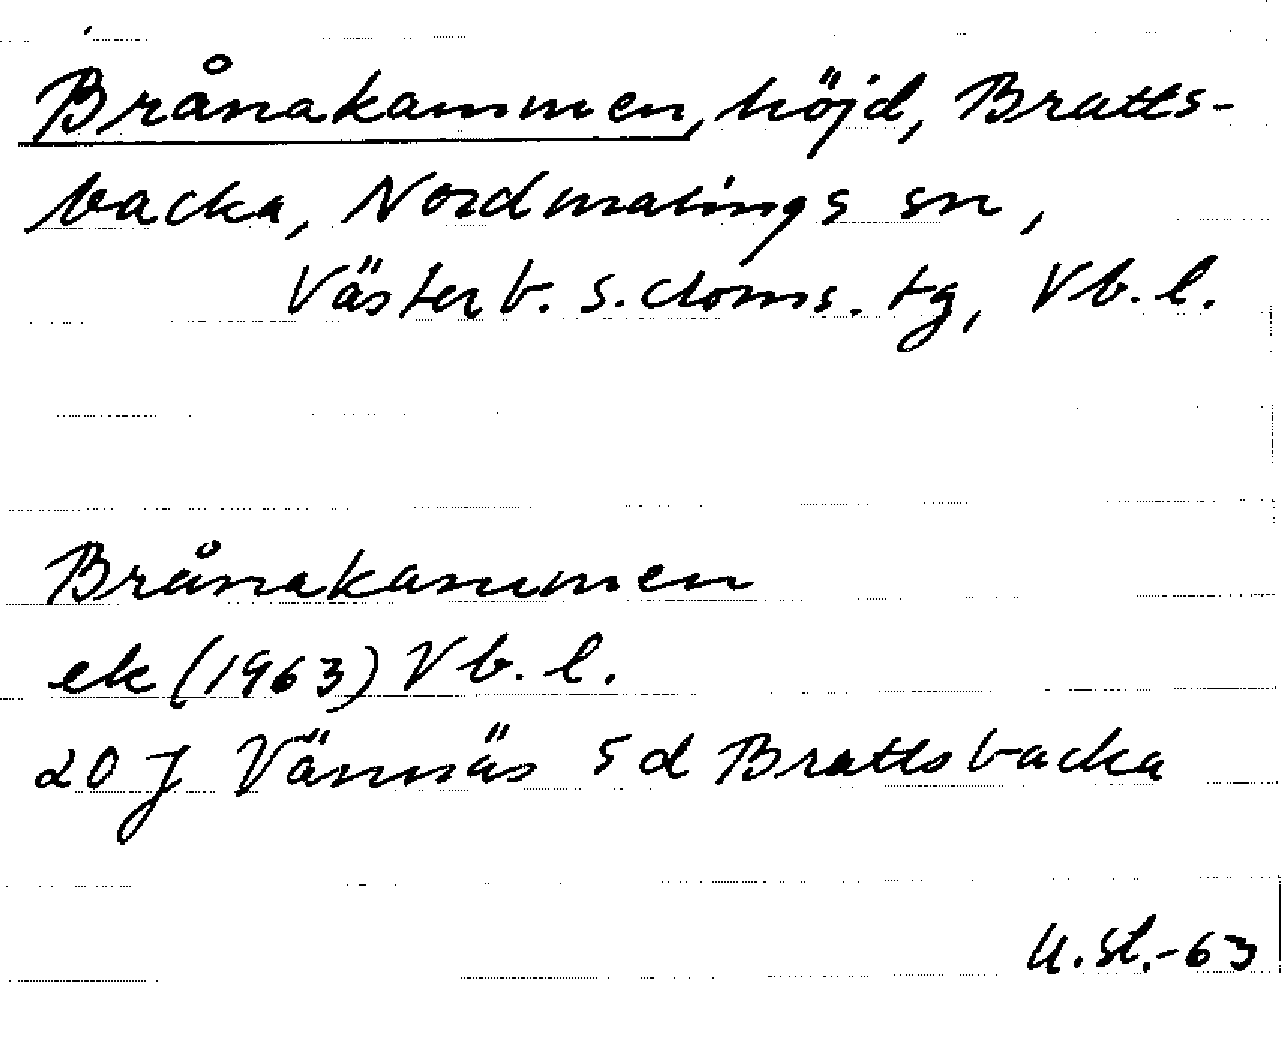 Brånakammen, höjd, Bratts-
backa, Nordmalings sn,
Västerb. s. doms. tg, Vb. l.
Brånakammen
ek (1963) Vb. l.
20 J Vännäs 5 d Brattsbacka
U. St.-63